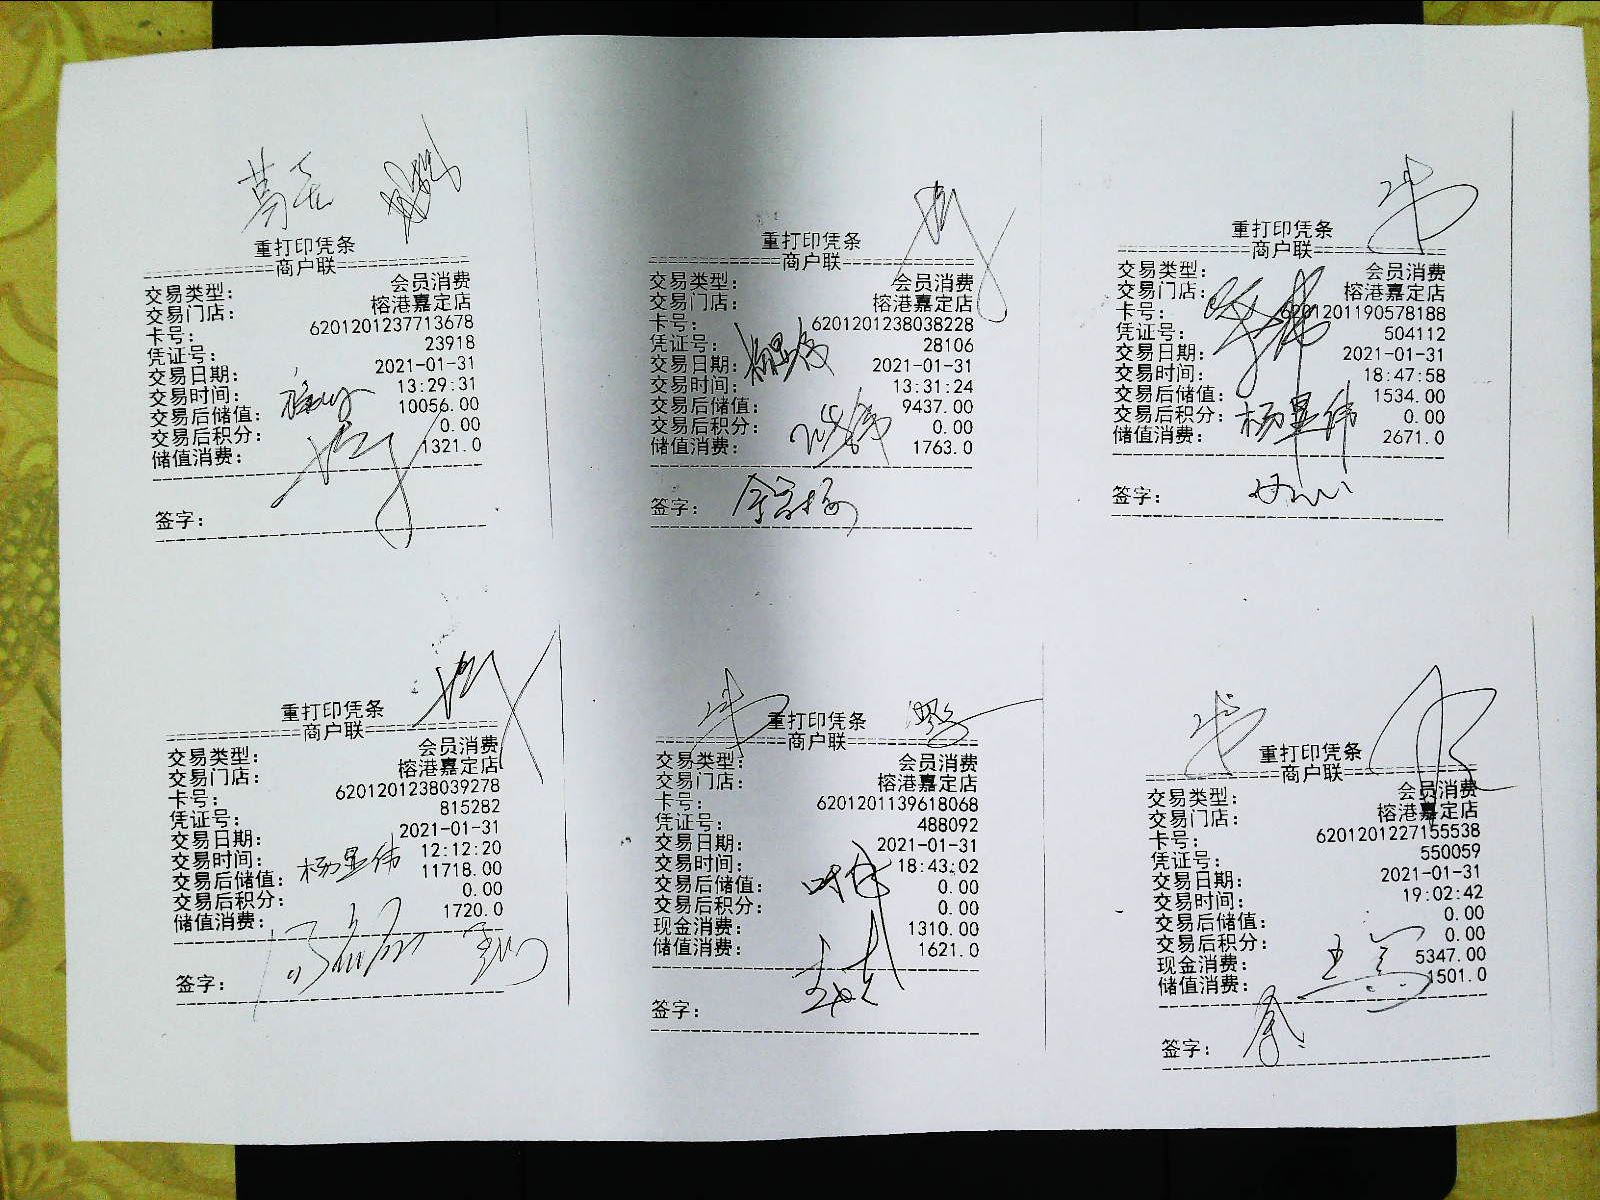 重打印凭条
商户联
交易类型： 会员消费
交易门店： 榕港嘉定店
卡号： 6201201237713678
凭证号： 23918
交易日期： 2021-01-31
交易时间： 13:29:31
交易后储值： 10056.00
交易后积分： 0.00
储值消费： 1321.0
签字：
重打印凭条
商户联
交易类型： 会员消费
交易门店： 榕港嘉定店
卡号： 6201201238038228
凭证号： 28106
交易日期： 2021-01-31
交易时间： 13:31:24
交易后储值： 9437.00
交易后积分： 0.00
储值消费： 1763.0
签字：
重打印凭条
商户联
交易类型： 会员消费
交易门店： 榕港嘉定店
卡号： 6201201190578188
凭证号： 504112
交易日期： 2021-01-31
交易时间： 18:47:58
交易后储值： 1534.00
交易后积分： 0.00
杨显伟
储值消费： 2671.0
签字：
重打印凭条
商户联
交易类型： 会员消费
交易门店： 榕港嘉定店
卡号： 6201201238039278
凭证号： 815282
交易日期： 2021-01-31
交易时间： 12:12:20
杨显伟
交易后储值： 11718.00
交易后积分： 0.00
储值消费： 1720.0
签字：
重打印凭条
商户联
交易类型： 会员消费
交易门店： 榕港嘉定店
卡号： 6201201139618068
凭证号： 488092
交易日期： 2021-01-31
交易时间： 18:43:02
交易后储值： 0.00
交易后积分： 0.00
现金消费： 1310.00
储值消费： 1621.0
签字：
重打印凭条
商户联
交易类型： 会员消费
交易门店： 榕港嘉定店
卡号： 6201201227155538
凭证号： 550059
交易日期： 2021-01-31
交易时间： 19:02:42
交易后储值： 0.00
交易后积分： 0.00
现金消费： 5347.00
储值消费： 1501.0
签字：